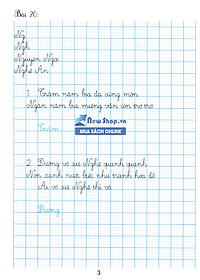 Bài 20:
Ng
Ngh
Nguyễn Ngọc
Nghệ An
1. Trăm năm bia đá cũng mòn
Ngàn năm bia miệng vẫn còn trơ trơ
NewShop.vn
MUA SÁCH ONLINE
Trăm
2. Đường vô xứ Nghệ quanh quanh
Non xanh nước biếc như tranh họa đồ
Ai vô xứ Nghệ thì vô
Đường
3